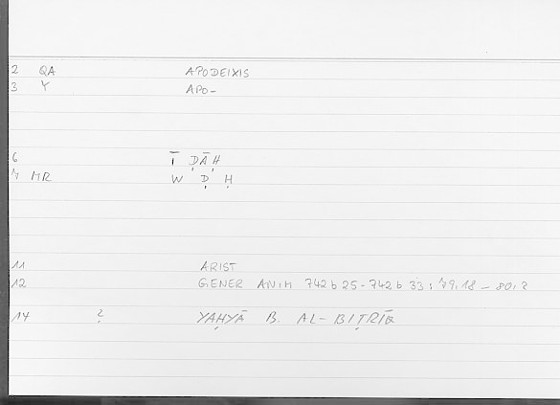 2 QA APODEIXIS
3 Y APO-
6 Ī ḌĀḤ
7 MR W Ḍ Ḥ
11 ARIST
12 GENER ANIM 742 b 25 - 742 b 33 ; 79,18 - 80,2
14 ? YAḤYĀ B. AL-BIṬRĪQ